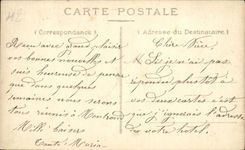 CARTE POSTALE
(Correspondance)
Reçu avec grand plaisir
vos bonnes nouvelles et
suis heureuse de penser
que dans quelques
semaines nous serons
tous réunis à
M. M. baisers
Tante Maria
(Adresse du Destinataire)
Chère Nièce,
Si je n'ai pas
répondu plus tôt à
vos deux cartes c'est
que j'ignorais l'adresse
de votre hôtel.